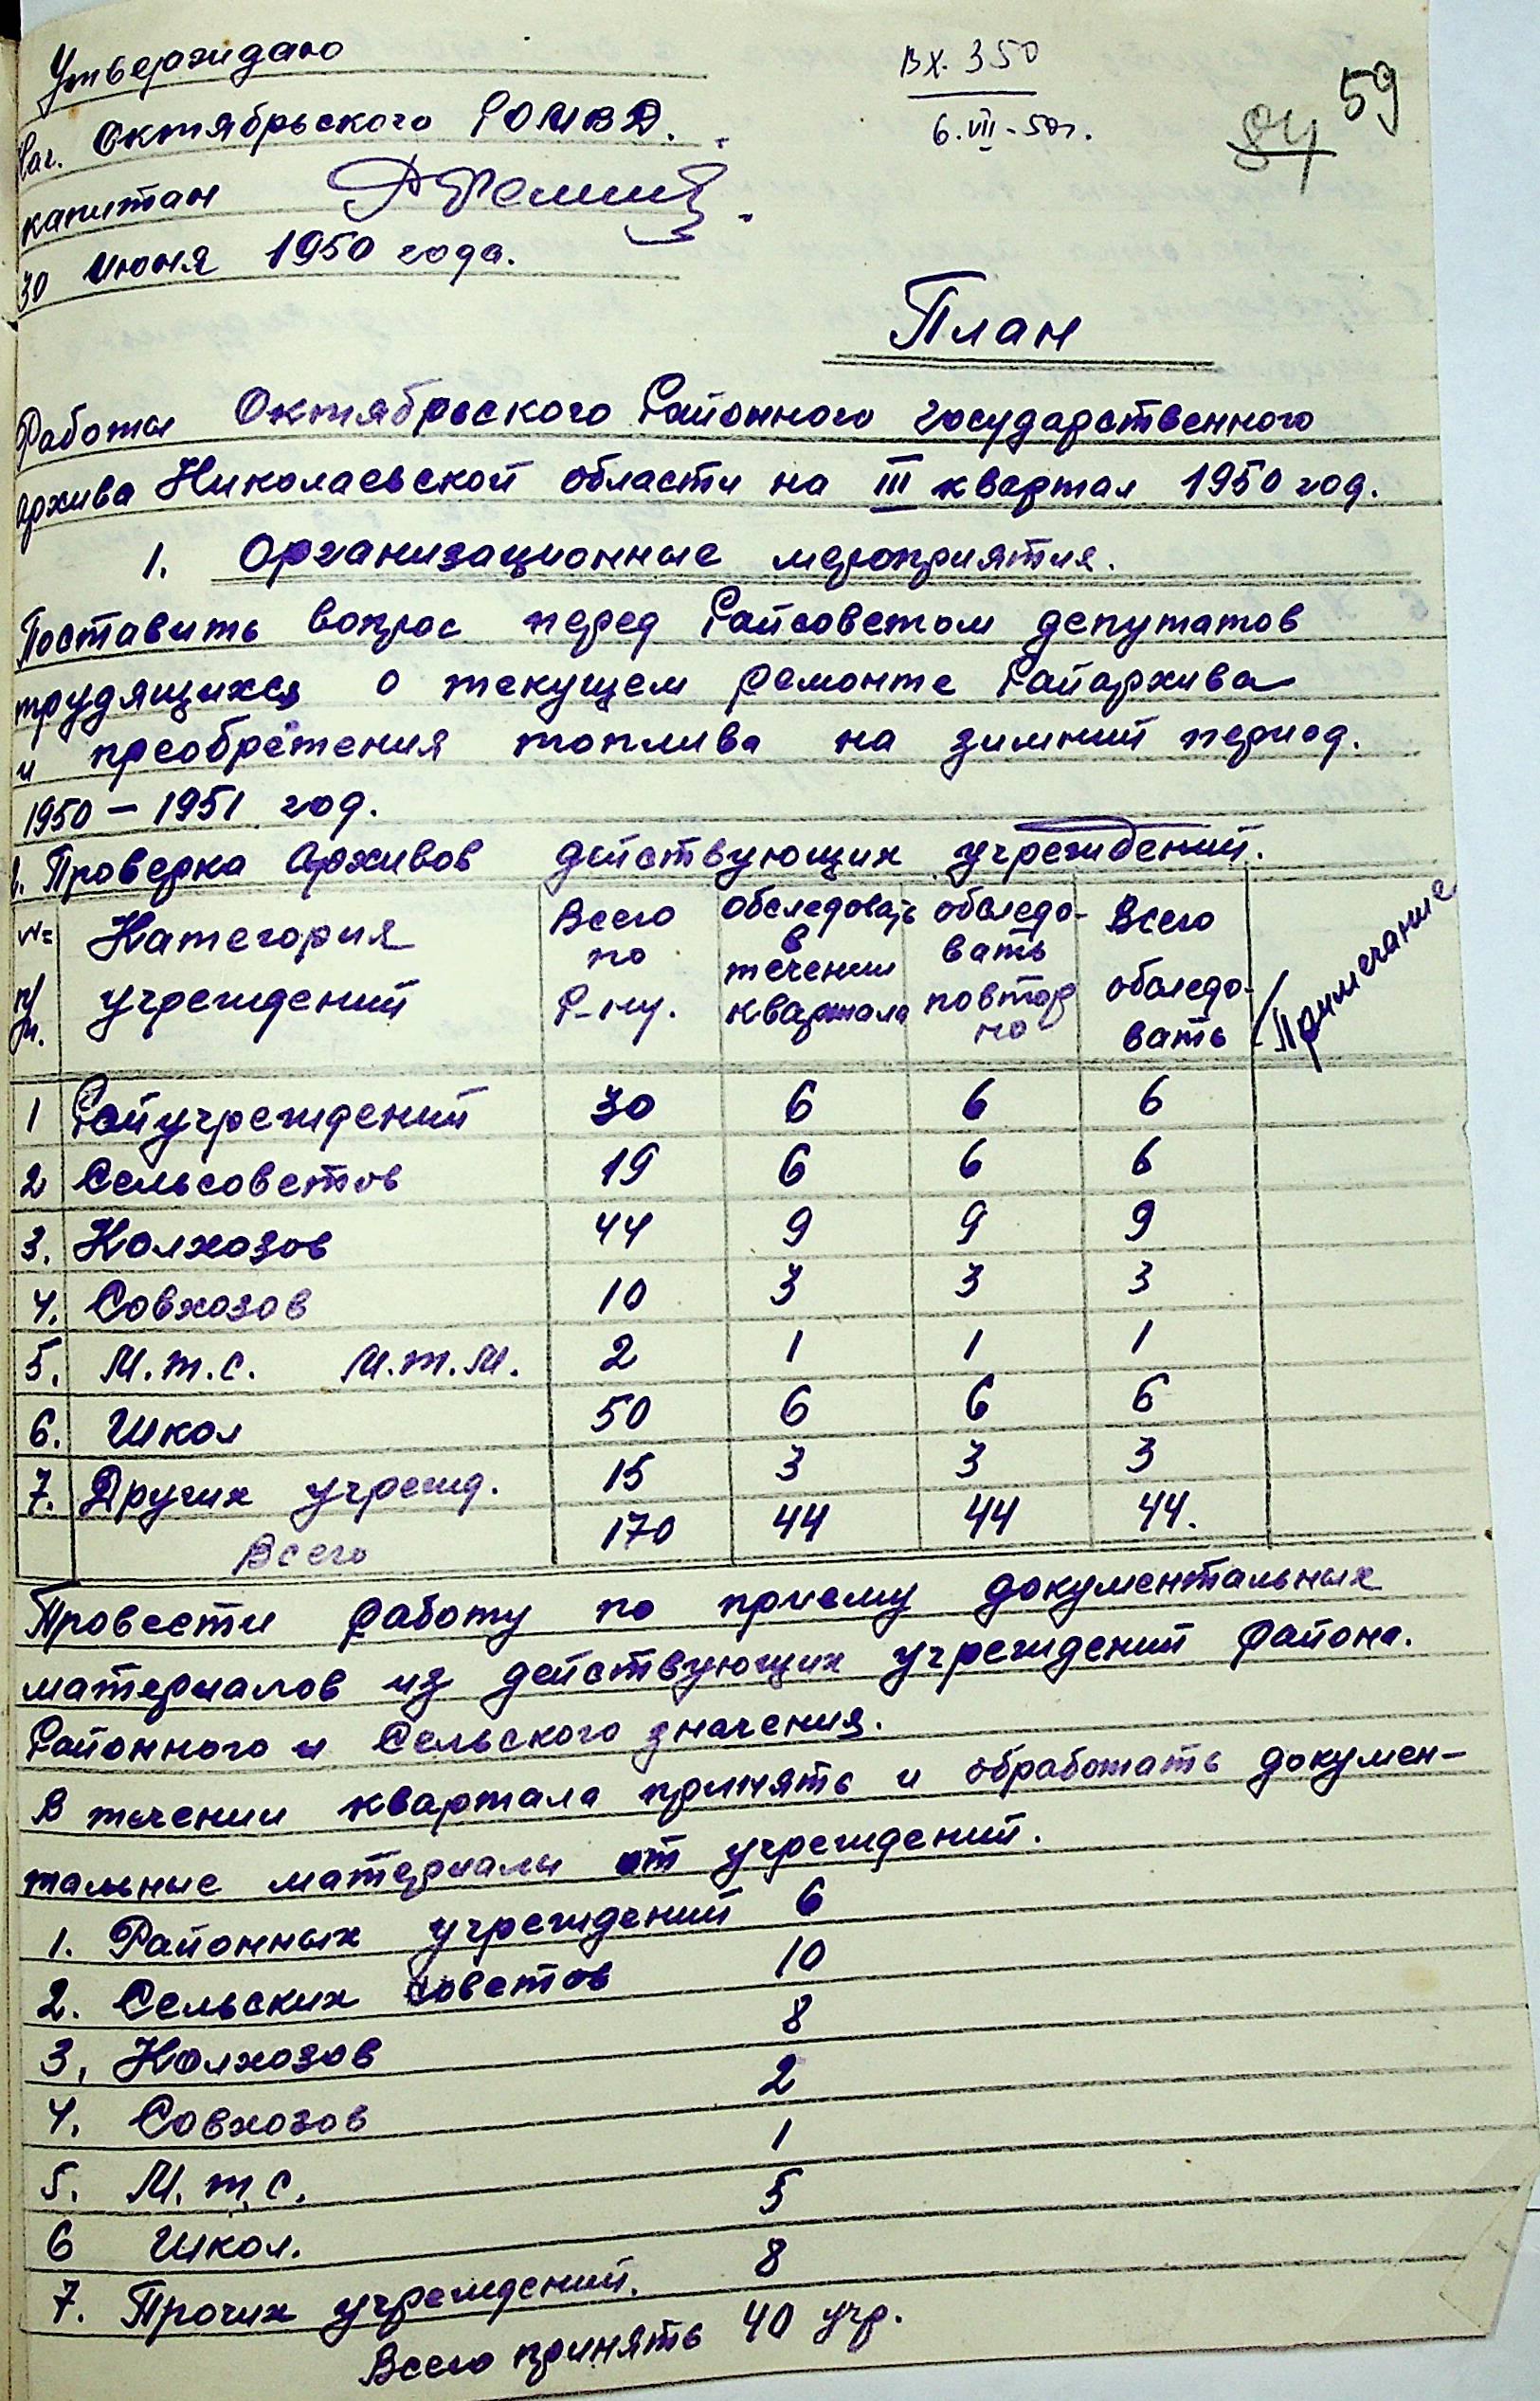 Утверждаю
Нач. Октябрьского РОМВД.
капитан
30 Июня 1950 года.
Вх. 350
6.VII-50г.
84 59
План
Работы Октябрьского Районного государственного
архива Николаевской области на III квартал 1950 год.
1. Организационные мероприятия.
Поставить вопрос перед Райсоветом депутатов
трудящихся о текущем ремонте Райархива
и преобретения топлива на зимний период.
1950 – 1951 год.
Проверка Архивов действующих учреждений.
№ п/п. Категория учреждений Всего по Р-ну. Обследовать в течении квартала обследовать повторно Всего обследовать Примечание
1 Райучреждений 30 6 6 6
2 Сельсоветов 19 6 6 6
3. Колхозов 44 9 9 9
4. Совхозов 10 3 3 3
5. М.т.с. М.т.М. 2 1 1 1
6. Школ 50 6 6 6
7. Других учрежд. 15 3 3 3
Всего 170 44 44 44.
Провести работу по приему документальных
материалов из действующих учреждений района.
Районного и Сельского значения.
В течении квартала принять и обработать докумен-
тальные материалы от учреждений.
1. Районных учреждений 6
2. Сельских советов 10
3. Колхозов 8
4. Совхозов 2
5. М.т.с. 1
6 Школ. 5
7. Прочих учреждений. 8
Всего принять 40 учр.